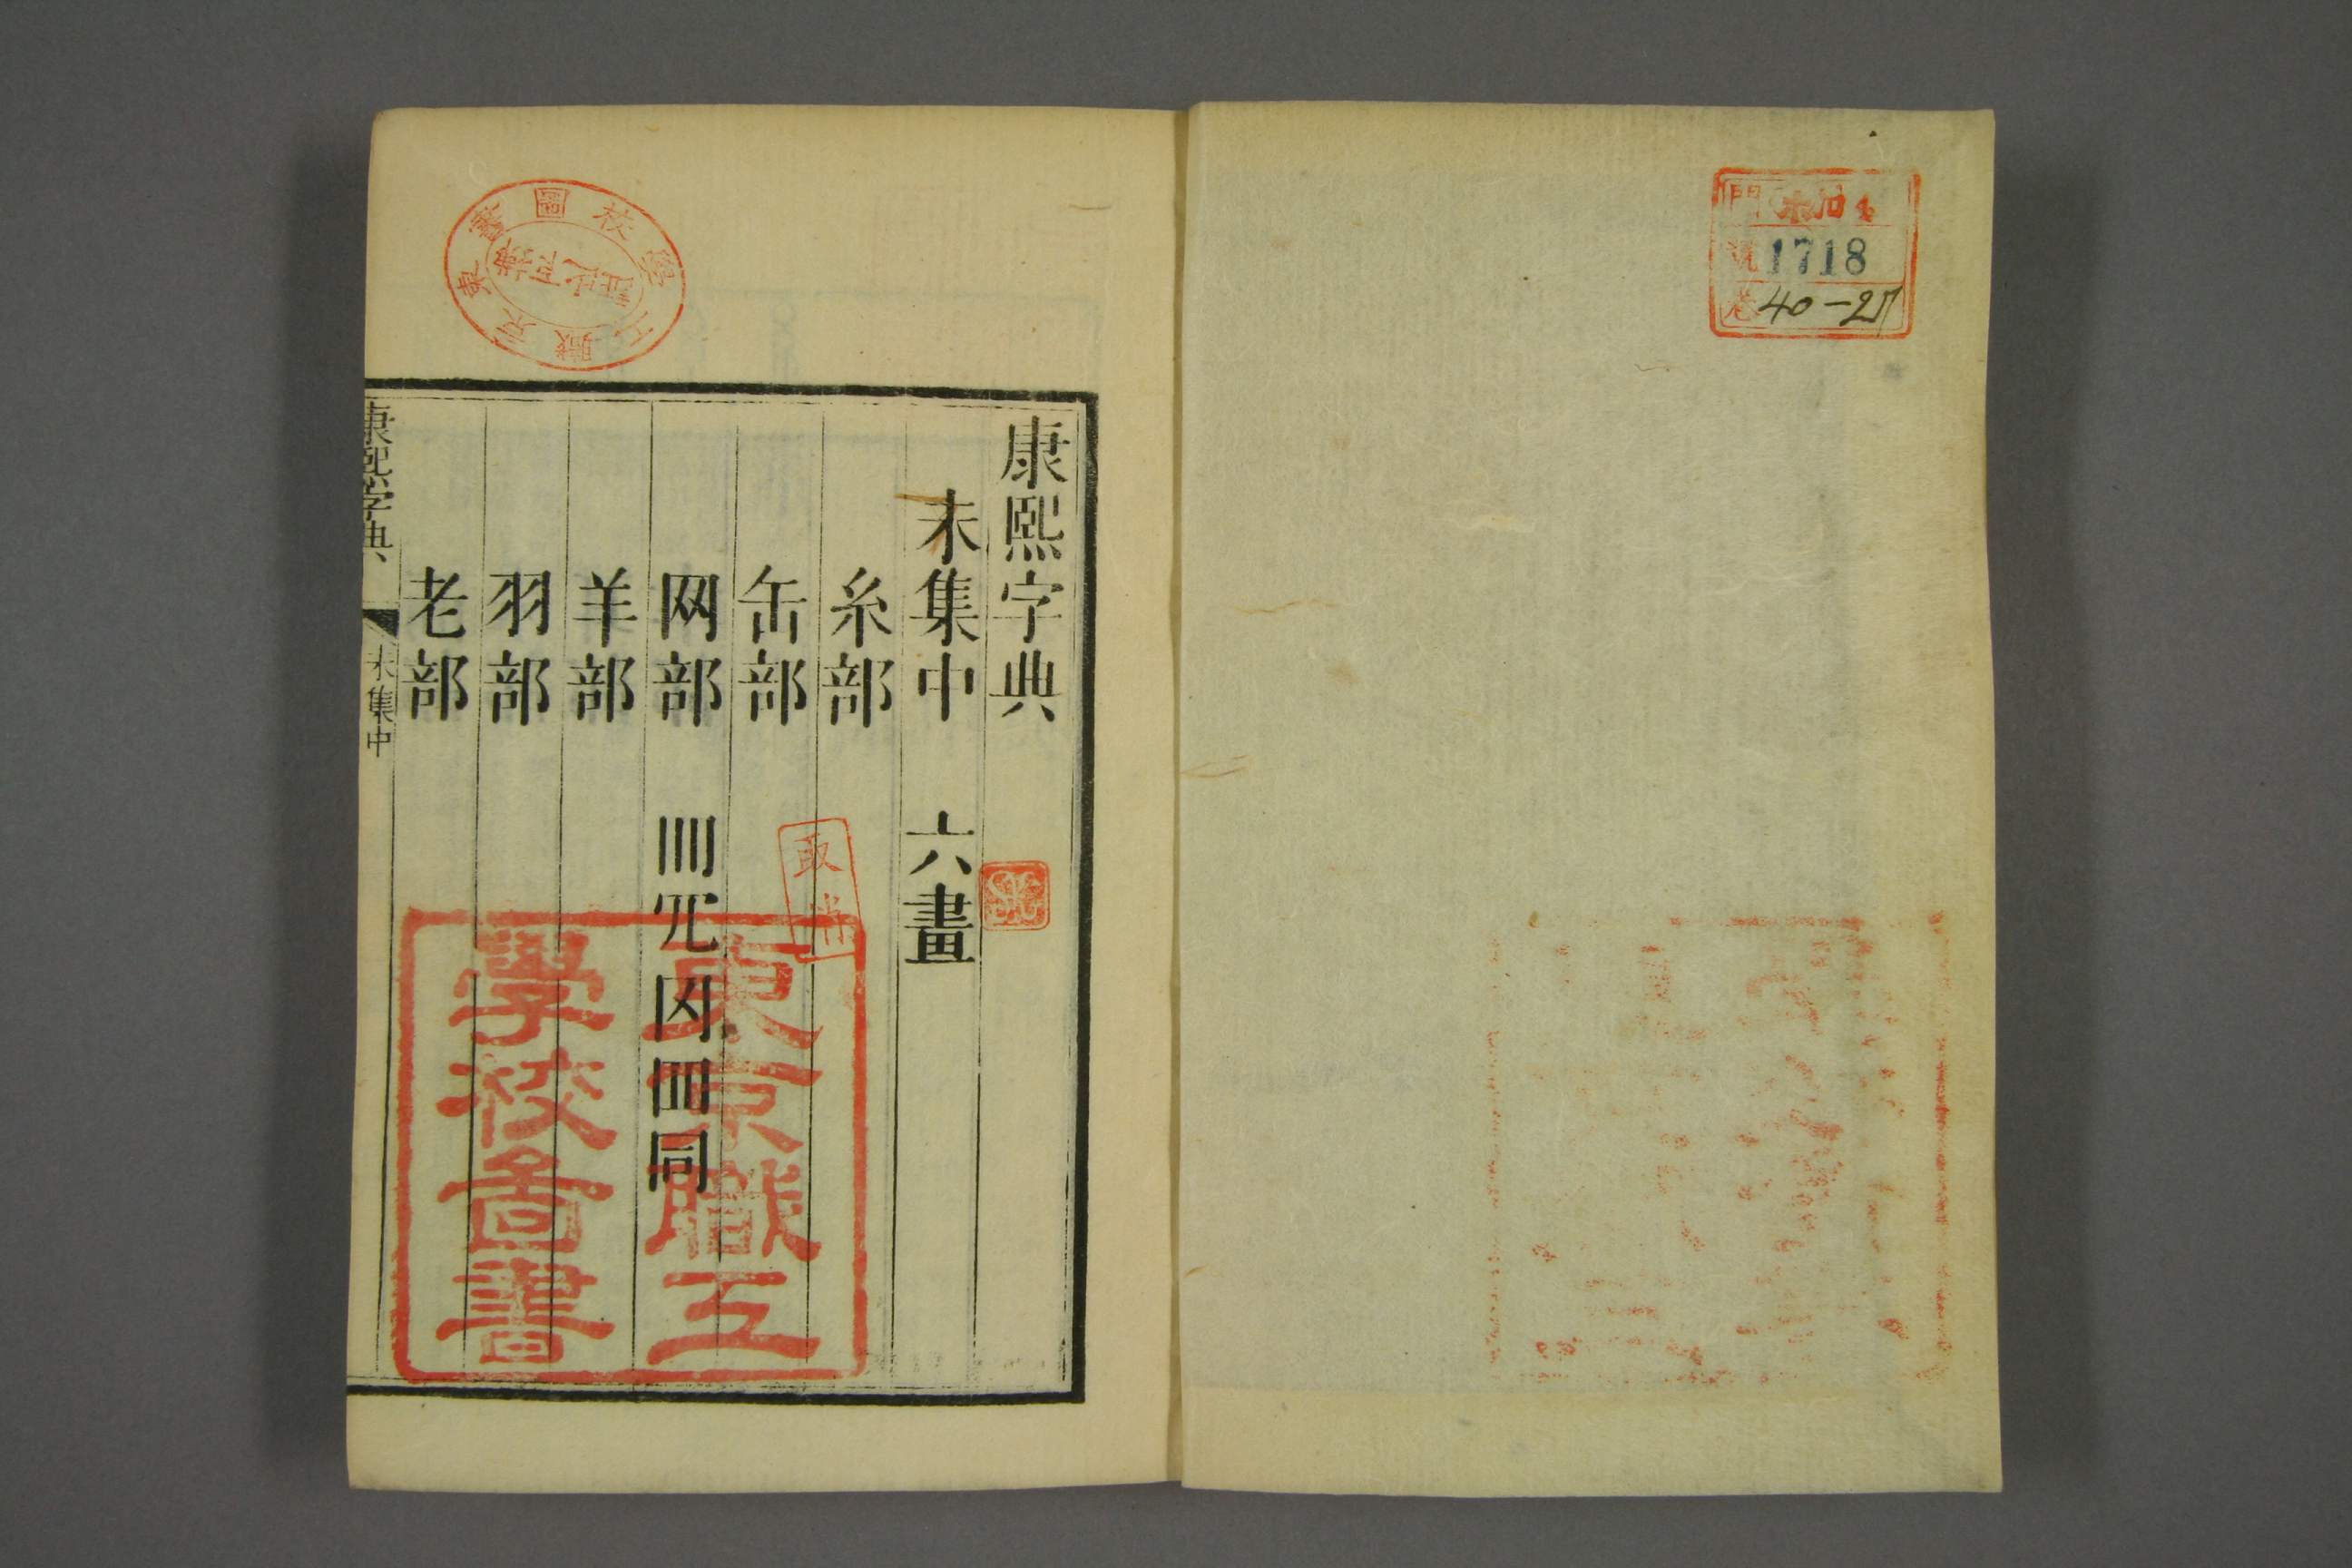 門
號 1718
卷 40-27
康熙字典
未集中 六畫
糸部
缶部
网部 罒𦉪𦉫罒同
羊部
羽部
老部
康熙字典 未集中
東京職工
學校圖書
東京職工學校圖書